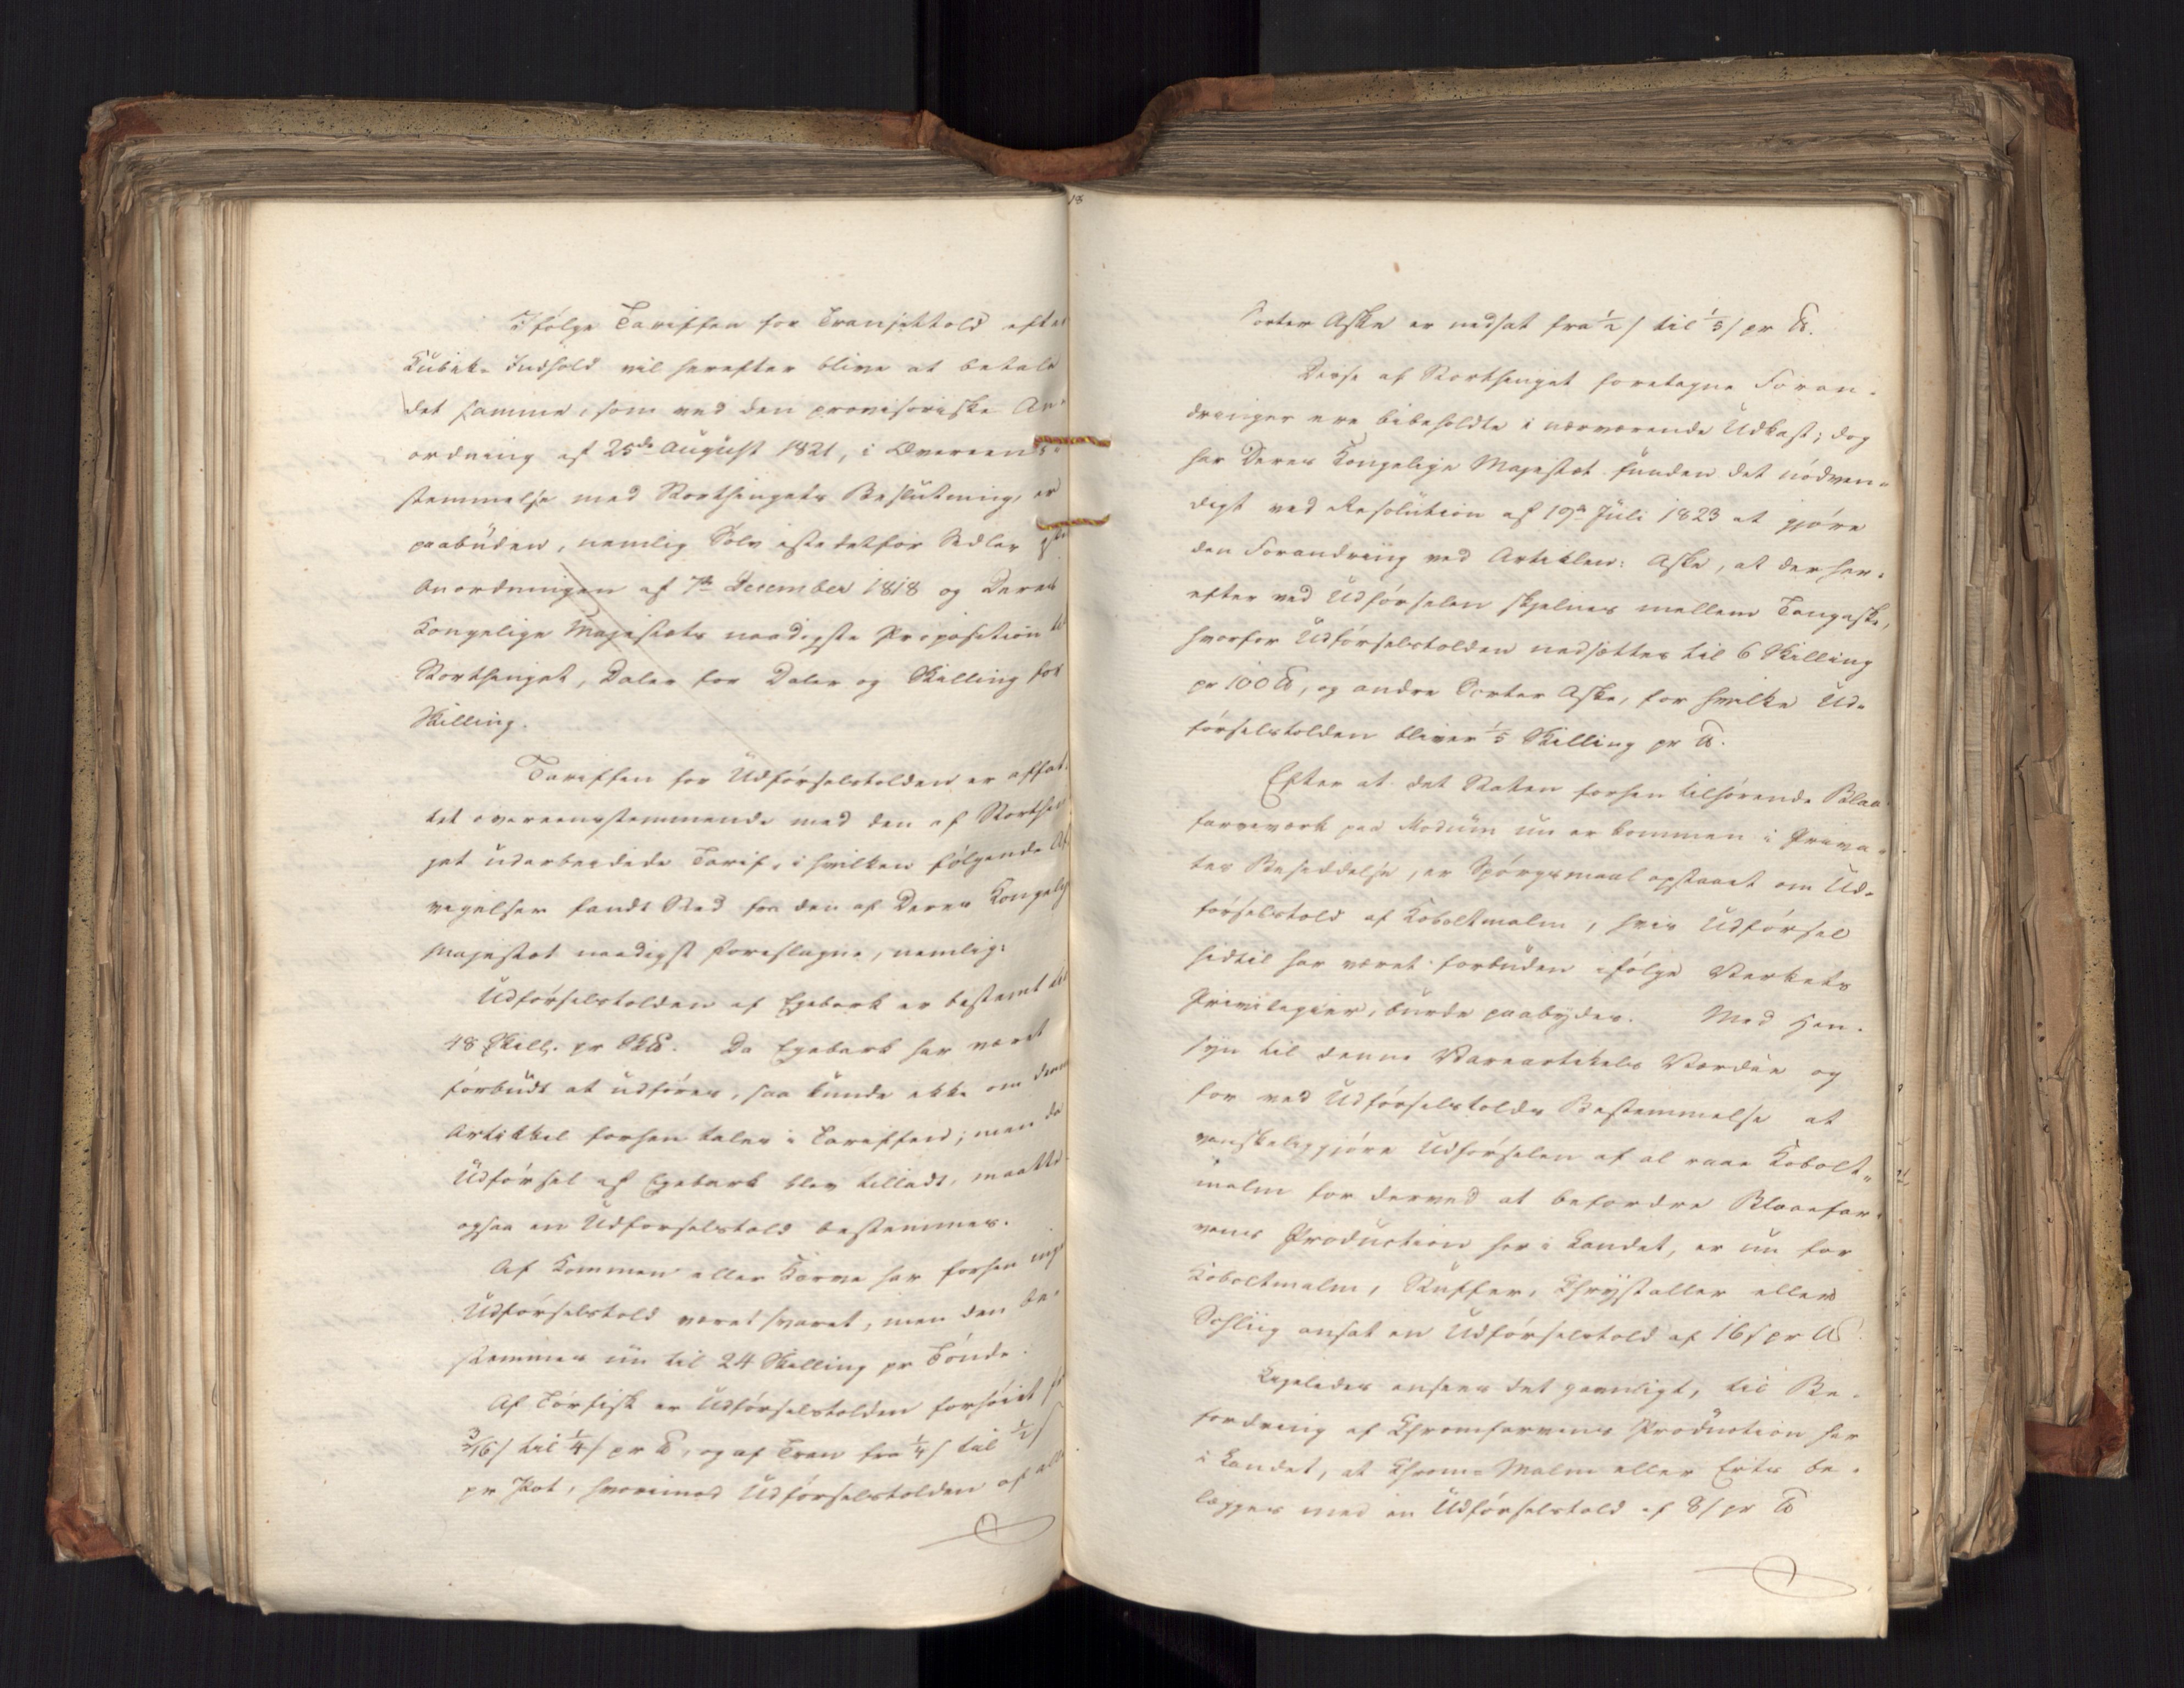 Ifølge Tariffen for Transittold efter
Kubik-Indhold vil herefter blive at betale
det samme, som ved den provisoriske An-
ordning af 25de August 1821, i Overeens-
stemmelse med Storthingets Beslutning, er
paabuden, nemlig Sølv istedetfor Sedler
Anordningen af 7de December 1818 og Deres
Kongelige Majestæts naadigste Proposition til
Storthinget, Daler for Daler og Skilling for
Skilling.
Tariffen for Udførselstolden er affat-
tet overeensstemmende med den af Storthin-
get udarbeidede Tarif, i hvilken følgende Af-
vigelser fandt Sted fra den af Deres Kongelige
Majestæt naadigst foreslagne, nemlig:
Udførselstolden af Egebark er bestemt til
48 Skill. pr Sk℔. Da Egebark har været
forbudt at udføres, saa kunde ikke om denne
Artikkel forhen tales i Tariffen; men da
Udførsel af Egebark blev tilladt, maatte
ogsaa en Udførselstold bestemmes.
Af Kommen eller Karve har forhen ingen
Udførselstold været svaret, men den be-
stemmes nu til 24 Skilling pr Tønde.
Af Tørfisk er Udførselstolden forhøiet fra
3/16 ſ til 1/4 ſ pr ℔, og af Tran fra 1/4 ſ til 1/2 ſ
pr Pot, hvorimod Udførselstolden af alle
18
Sorter Aske er nedsat fra 1/2 ſ til 1/5 ſ pr ℔.
Disse af Storthinget foretagne Foran-
dringer ere bibeholdte i nærværende Udkast; dog
har Deres Kongelige Majestæt funden det nødven-
digt ved Resolution af 19de Juli 1823 at gjøre
den Forandring ved Artiklen: Aske, at der her-
efter ved Udførselen skjelnes mellem Tangaske,
hvorfor Udførselstolden nedsættes til 6 Skilling
pr 100 ℔, og andre Sorter Aske, for hvilke Ud-
førselstolden bliver 1/5 Skilling pr ℔.
Efter at det Staten forhen tilhørende Blaa-
farveværk paa Modum nu er kommen i Priva-
tes Besiddelse, er Spørgsmaal opstaaet om Ud-
førselstold af Koboltmalm, hvis Udførsel
hidtil har været forbuden ifølge Værkets
Privilegier, burde paabydes. Med Hen-
syn til denne Vareartikels Værdie og
for ved Udførselstolds Bestemmelse at
vanskeliggjøre Udførselen af al raae Kobolt-
malm for derved at befordre Blaaefar-
vens Production her i Landet, er nu for
Koboltmalm, Stuffer, Chrystaller eller
Schliig ansat en Udførselstold af 16 ſ pr ℔.
Ligeledes ansees det gavnligt, til Be-
fordring af Chromfarvens Production her
i Landet, at Chrom-Malm eller Erts be-
lægges med en Udførselstold af 8 ſ pr ℔